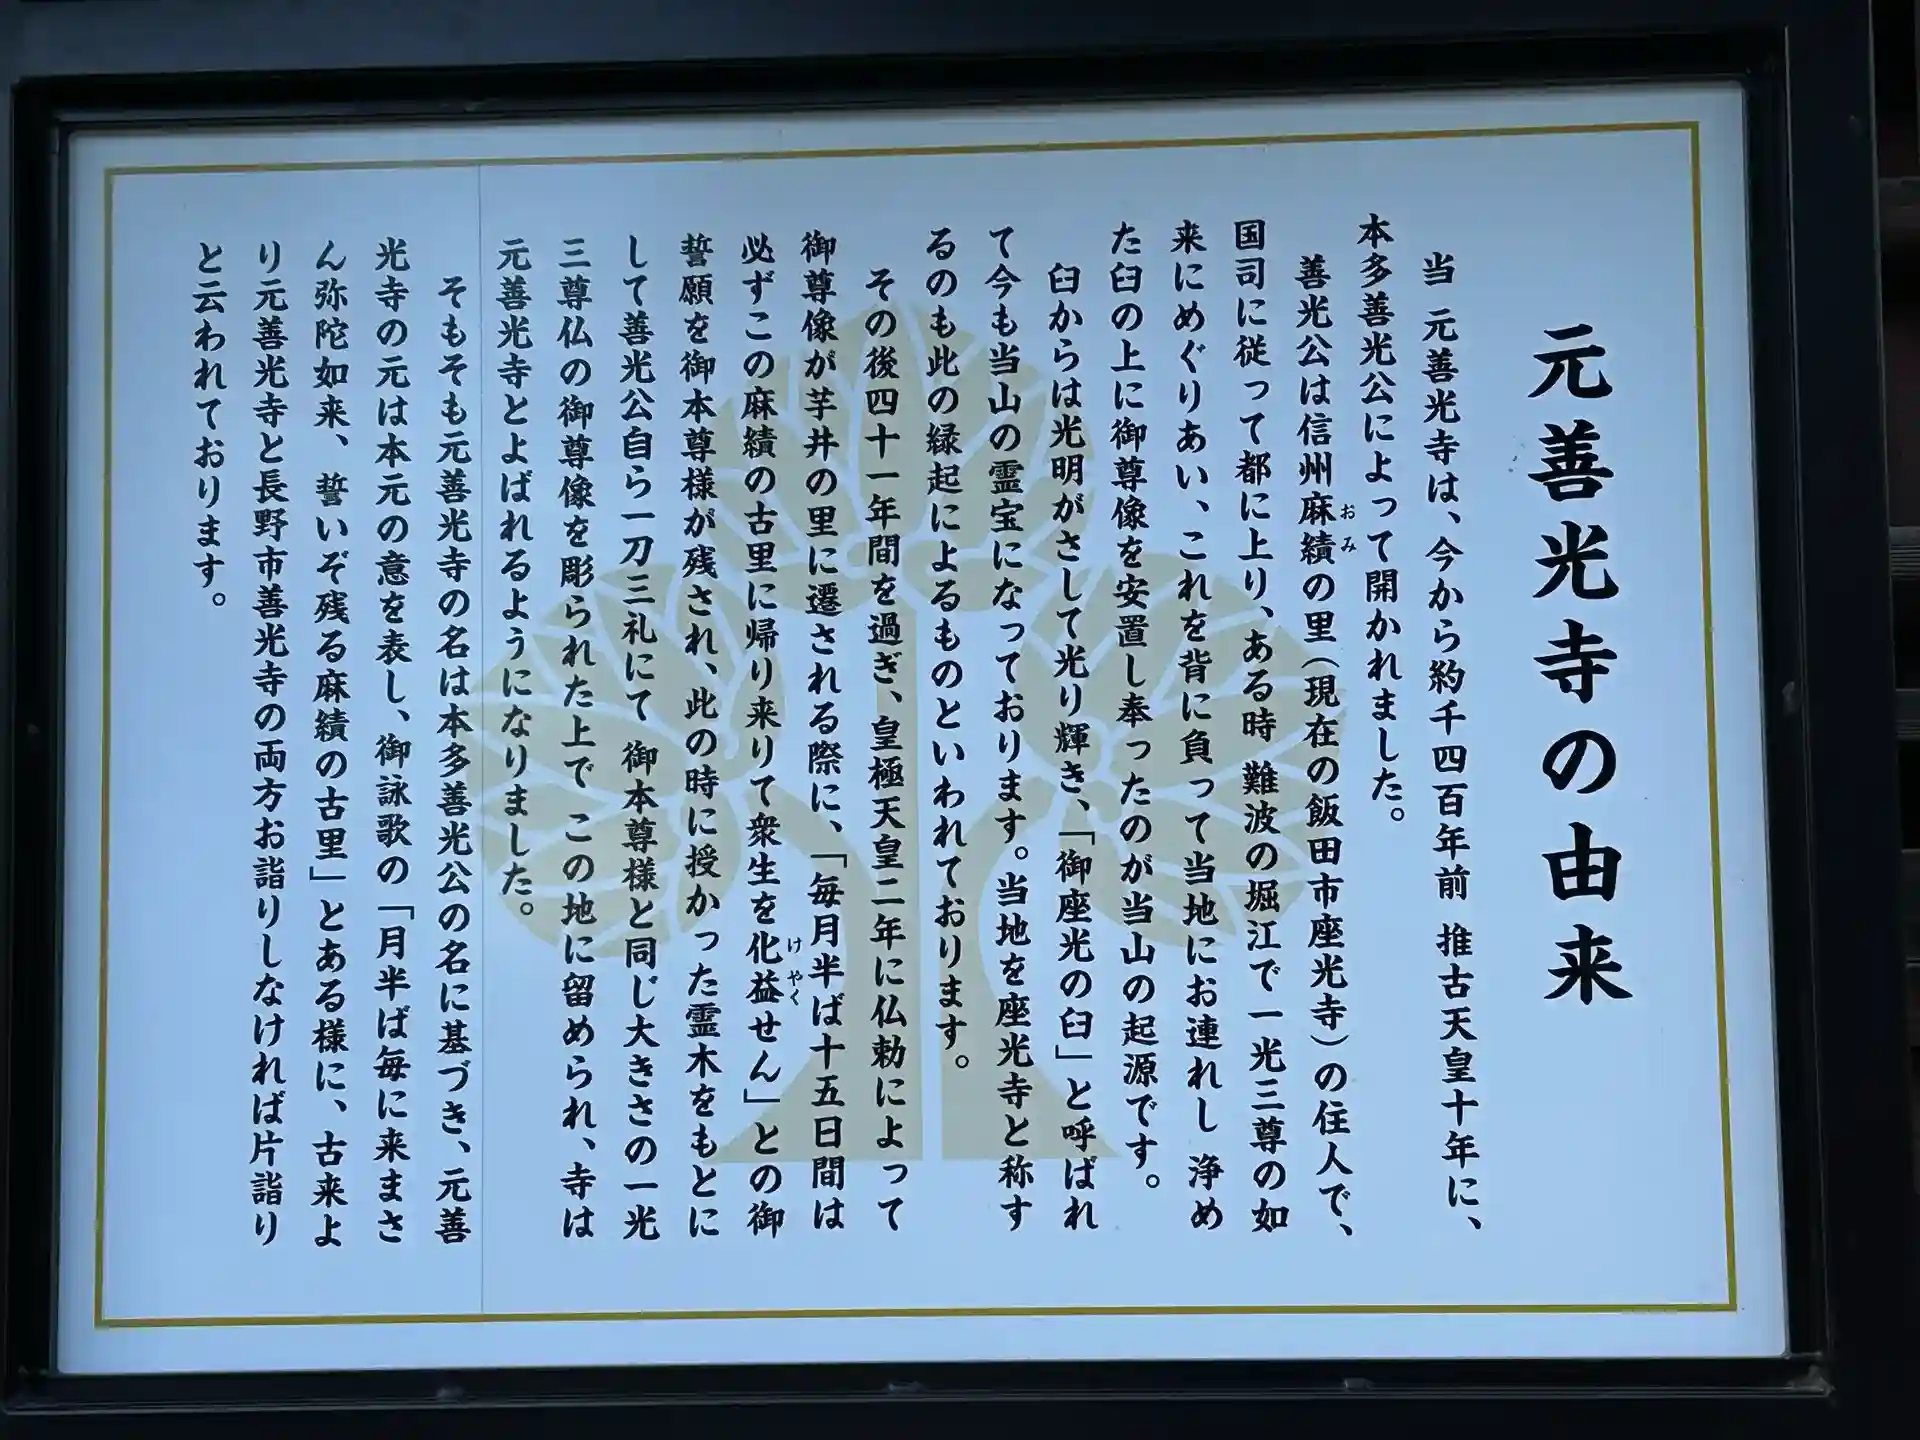 元善光寺の由来
当 元善光寺は、今から約千四百年前 推古天皇十年に、
本多善光公によって開かれました。
善光公は信州麻績の里(現在の飯田市座光寺)の住人で、
おみ
国司に従って都に上り、ある時 難波の堀江で一光三尊の如
来にめぐりあい、これを背に負って当地にお連れし 浄め
た臼の上に御尊像を安置し奉ったのが当山の起源です。
臼からは光明がさして光り輝き、「御座光の臼」と呼ばれ
て今も当山の霊宝になっております。当地を座光寺と称す
るのも此の縁起によるものといわれております。
その後四十一年間を過ぎ、皇極天皇二年に仏勅によって
御尊像が芋井の里に遷される際に、「毎月半ば十五日間は
必ずこの麻績の古里に帰り来りて衆生を化益せん」との御
けやく
誓願を御本尊様が残され、此の時に授かった霊木をもとに
して善光公自ら一刀三礼にて 御本尊様と同じ大きさの一光
三尊仏の御尊像を彫られた上で この地に留められ、寺は
元善光寺とよばれるようになりました。
そもそも元善光寺の名は本多善光公の名に基づき、元善
光寺の元は本元の意を表し、御詠歌の「月半ば毎に来まさ
ん弥陀如来、誓いぞ残る麻績の古里」とある様に、古来よ
り元善光寺と長野市善光寺の両方お詣りしなければ片詣り
と云われております。